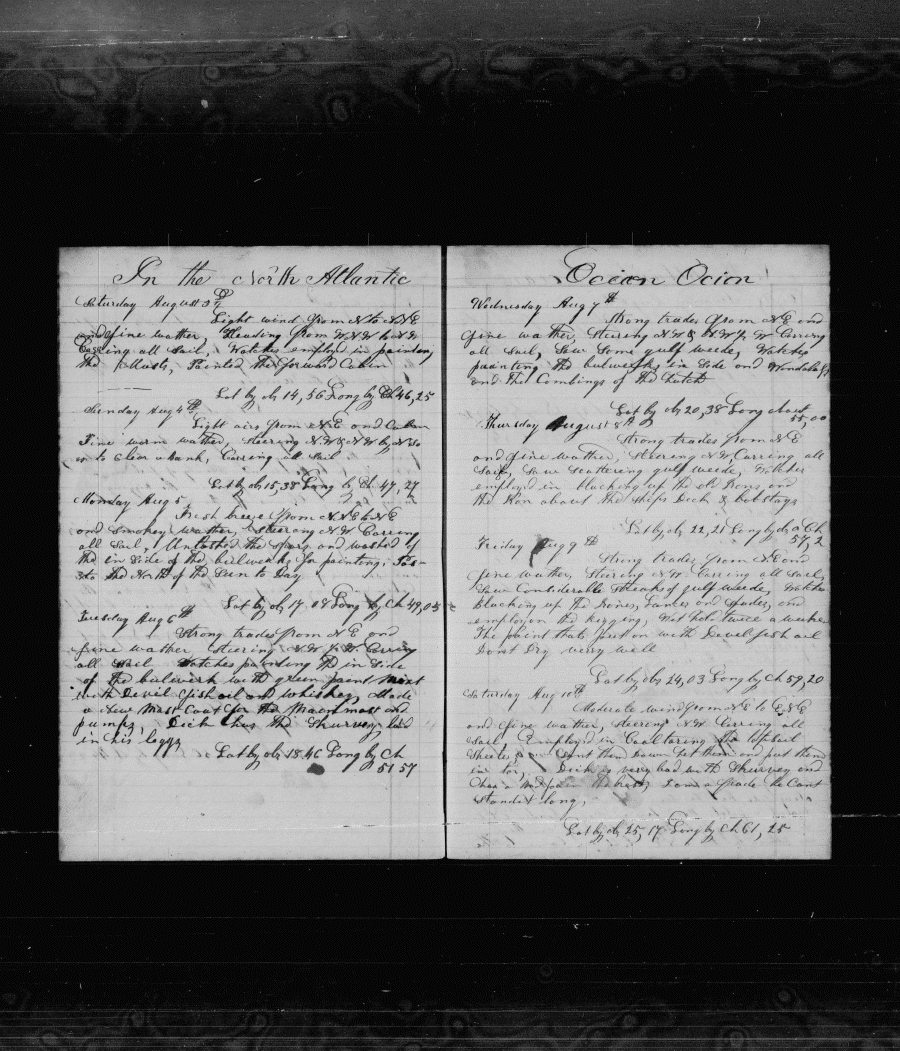 In the North Atlantic
Saturday August 3d
Light wind from N to NNE
and fine wather, Heading from WNW to NW
Carring all Sail, Watches employed in painting
the Masts, Painted the forward Cabin
Lat by ob 14,56 Long by Ch 46,25
Sunday Aug 4th
Light airs from N.E. and Calm
Fine warm wather, steering NW & NW by N so
as to clear a bank, Carring all sail
Lat by ob 15,38 Long by Ch 47,27
Monday Aug 5
Fresh breeze from NNE to NE
and smokey wather, steering N.W. Carring
all Sail, Unlashed the spars and washed of
the in Side of the bulwerks for painting, Pas-
to the North of the Sun to Day
Lat by ob 17.08 Long by Ch 49,05
Tuesday Aug 6th
Strong trades from N E and
fine wather Steering N.W. & W. Carring
all Sail Watches painting the in Side
of the bulwerk with green paint mixt
with Devil fish oil and whiskey, Made
a New Mast Coat for the Mainmast and
pumps Dick has the Skurvey bad
in his leggs
Lat by ob 18.46 Long by Ch
51 57
Ocion Ocion
Wednesday Aug 7th
Strong trades from N E and
fine wather, Steering N.W. & W. Carring
all Sail, Saw Some gulf weede, Watches
painting the bulwerks in Side and
and the Combings of the Hatch
Lat by ob 20,38 Long about
55,00
Thursday August 8th
Strong trades from N E
and fine wather, Steering N.W. Carring all
Sail, Saw Scattering gulf weede, Watches
employed in blacking up the old Irons and
the Iron about the Ships Deck & bobstays
Lat by ob 22,21 Long by Ch
57,2
Friday Aug 9th
Strong trades from N.E. and
fine wather, Steering N.W. Carring all Sail,
Saw Considerable Streaks of gulf weede, Watches
blacking up the Irones, Lances and Spades, and
employ on the rigging, Wet hold twice a weeke
The paint thats put on with Devilfish oil
Dont Dry verry well
Lat by ob 24,03 Long by Ch 59,20
Saturday Aug 10th
Moderate wind from N E to E.N.E
and fine wather, steering N.W Carring all
Sail Employed in Coal taring the topsail
Sheetes, them Down Let them and put them
in tar, Dick is very bad with Skurvey and
has a bad pain I am a fraide he Cant
Stand it long,
Lat by ob 25,17 Long by Ch 61,25